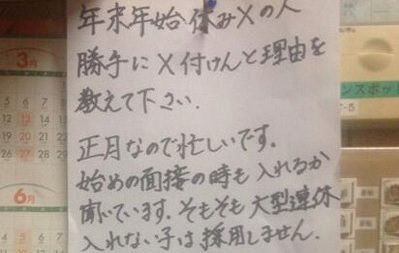 年末年始休み×の人
勝手に×付けんと理由を
教えて下さい.
正月なので忙しいです。
始めの面接の時も入れるか
聞いています.そもそも大型連休
入れない子は採用しません.
3月
5 6 7 8
12 13 14 15
19 20 21 22
26 27 28 29
6月
ンスポット
T-5